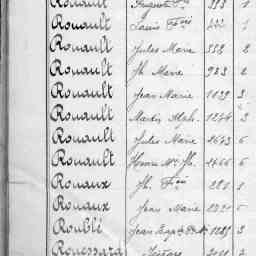 Rouault Auguste Fs 393 1
Rouault Louis Fçois 222 1
Rouault Jules Marie 552 2
Rouault Jh. Marie 923 2
Rouault Jean Marie 1039 3
Rouault Marin Alph. 1244 3
Rouault Jules Marie 2643 6
Rouault Henri Mie Jh. 2666 6
Rouaux Jh. Fçois 281 1
Rouaux Jean Marie 2321 5
Roublé Jean Bapt. 1285 3
Rouessard 2011